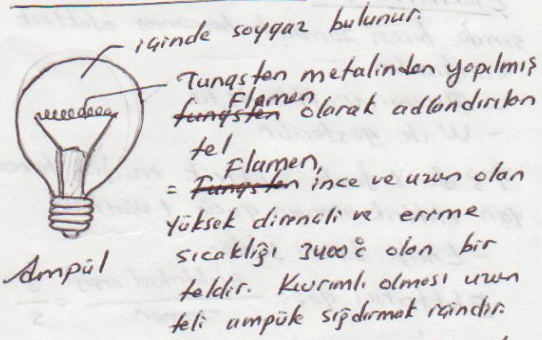 içinde soygaz bulunur.
Tungsten metalinden yapılmış
Flamen
tungsten olarak adlandırılan
tel
Flamen,
= Tungsten ince ve uzun olan
yüksek dirençli ve erime
sıcaklığı 3400° olan bir
teldir. Kıvrımlı olması uzun
teli ampüle sığdırmak içindir.
Ampül